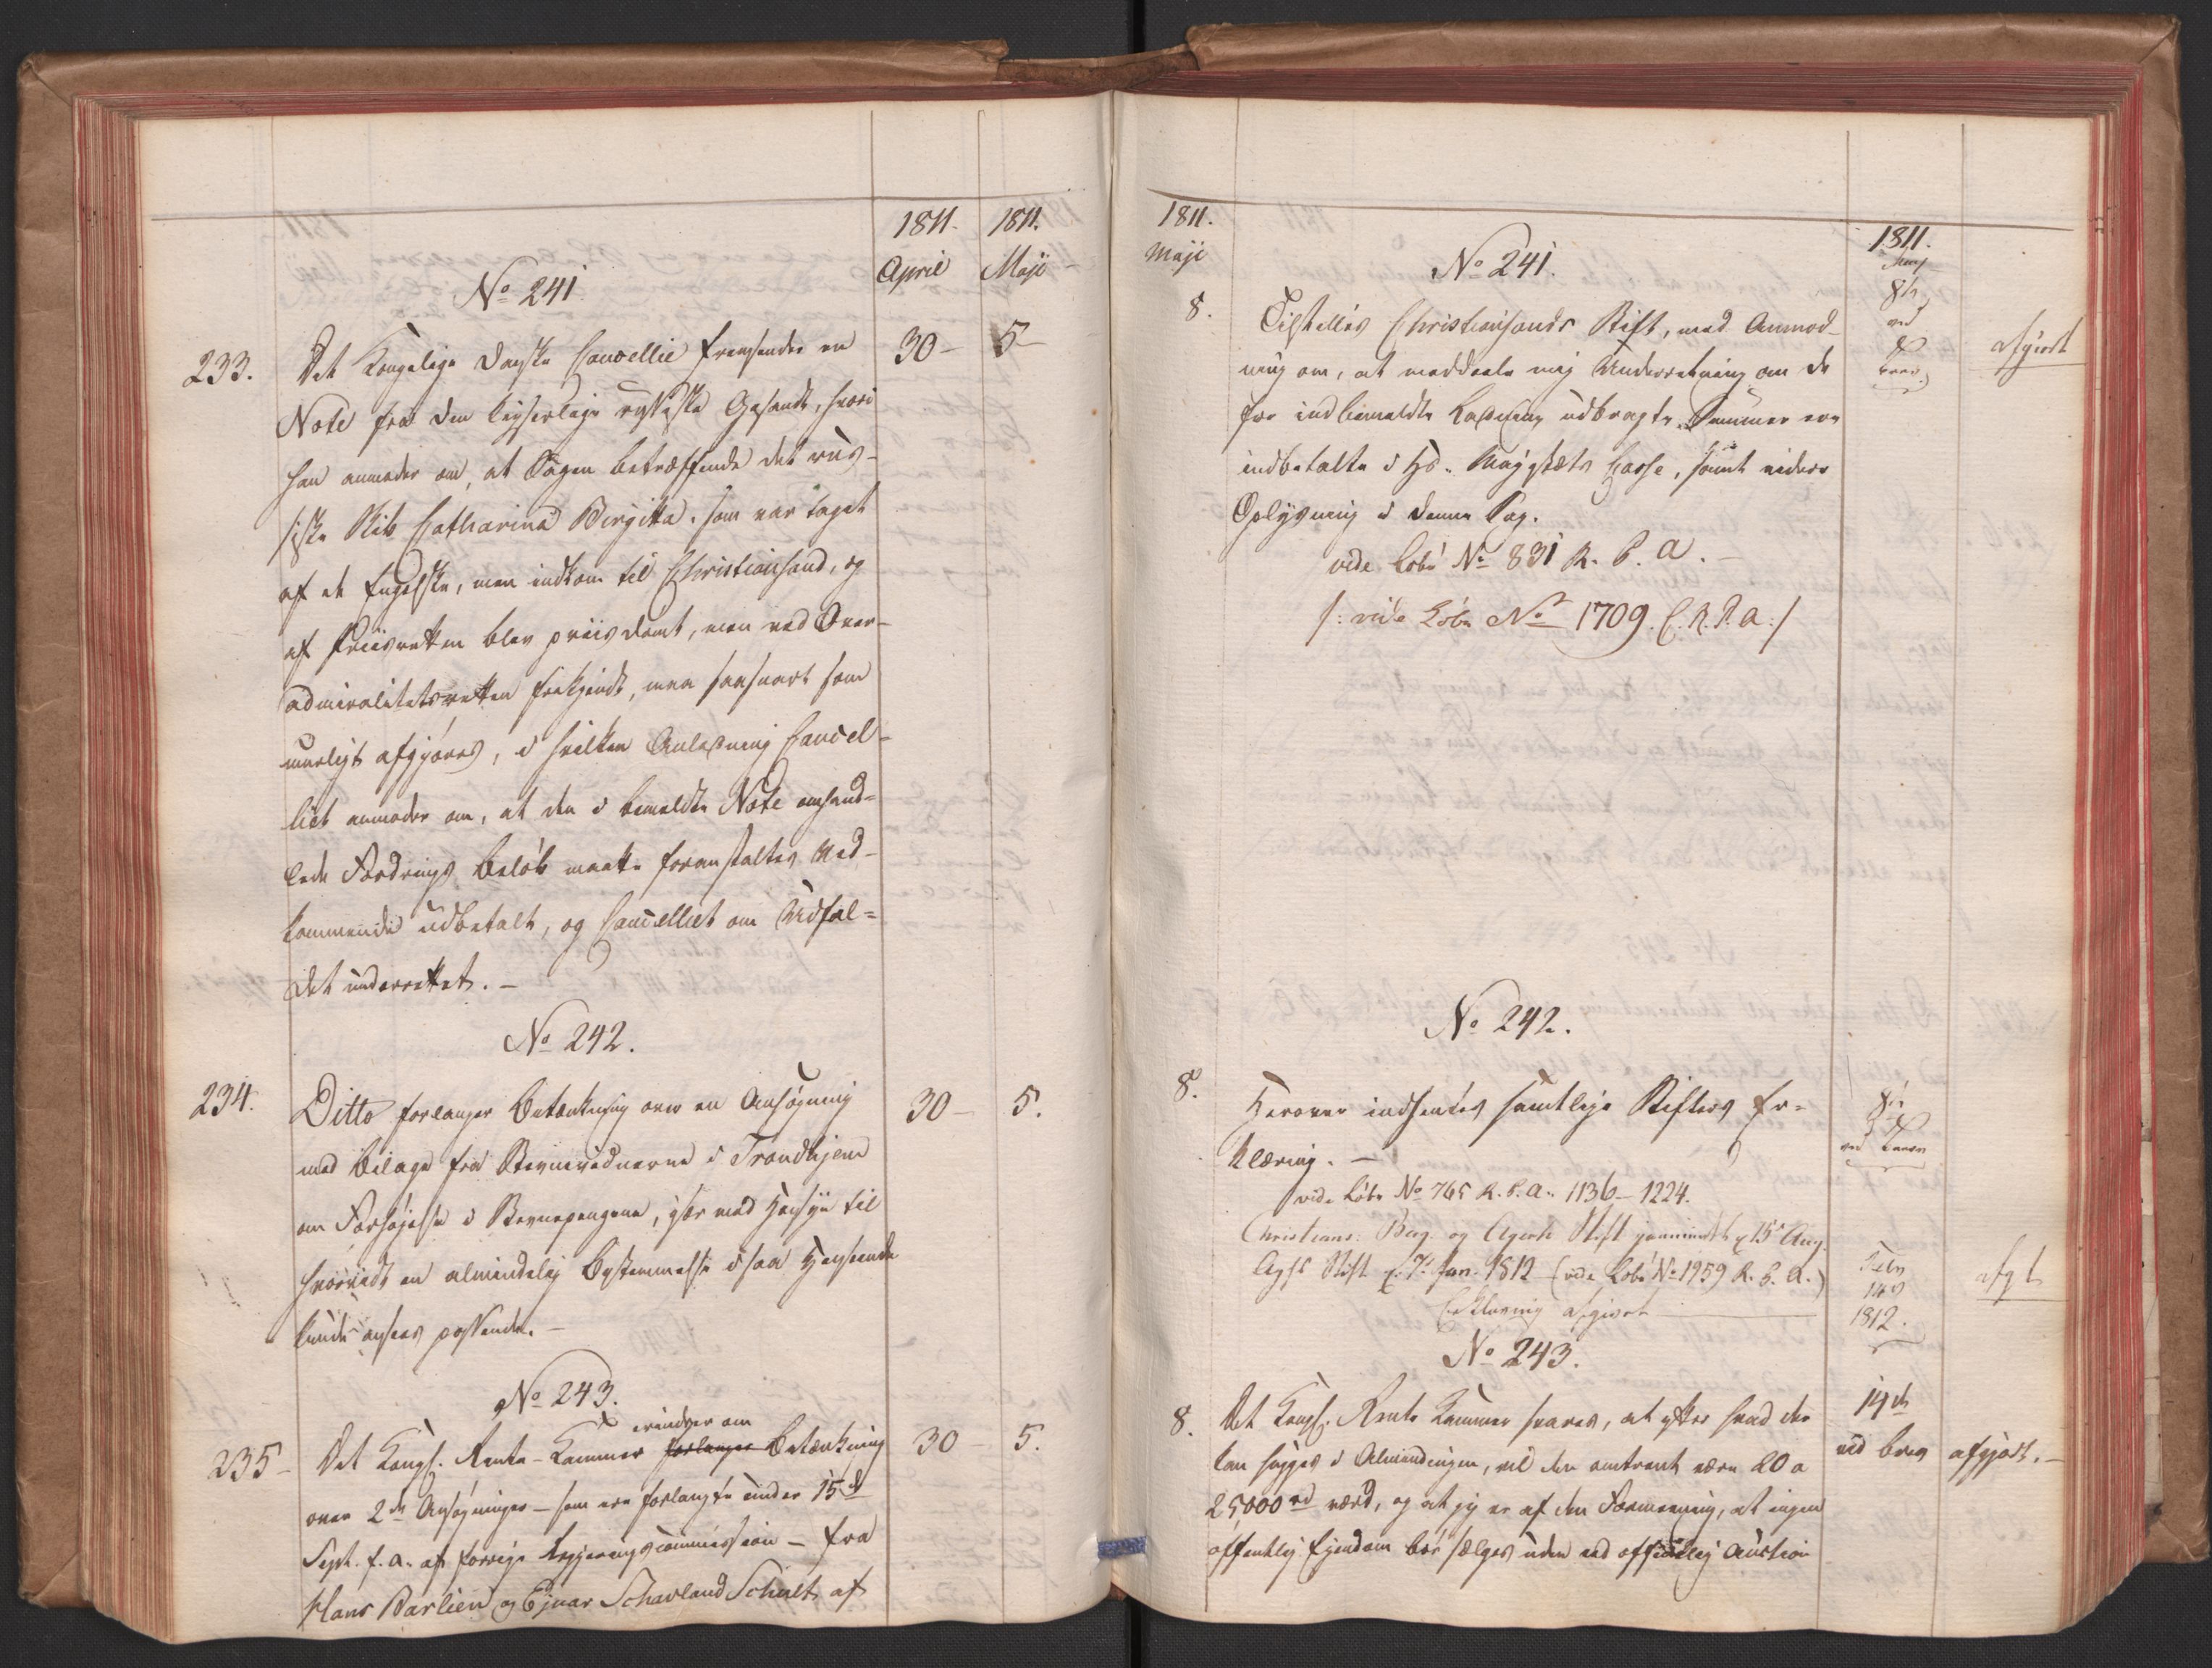 1811. 1811.
April Maji
No 241
233. Det Kongelige Danske Cancellie fremsender en 30- 5-
Note fra den Keyserlige russiske Gesandt, hvori
han anmoder om, at Sagen betræffende det rus-
siske Skib Catharina Birgitta. som var taget
af de Engelske, men indkom til Christiansand, og
af Priisretten blev priisdømt, men ved Over-
admiralitetsretten frikjendt, maa saasnart som
mueligt afgjøres, i hvilken Anledning Cancel-
liet anmoder om, at den i bemeldte Note omhand-
lede Fordrings Beløb maatte foranstaltes Ved-
kommende udbetalt, og Cancelliet om Udfal-
det underrettet. -
No 242.
234. Ditto forlanger Betænkning over en Ansøgning 30- 5.
med Bilage fra Stevnevidnerne i Trondhjem
om Forhøjelse i Stevnepengene, især med Hensyn til
hvorvidt en almindelig Bestemmelse i saa Henseende
kunde ansees passende. -
No 243.
erindrer om
235- Det Kongl. Rente-Kammer forlanger Betænkning 30- 5.
over 2de Ansøgninger - som ere forlangte under 15d
Sept. f. a. af forrige Regjeringscommission - fra
Hans Barlien og Ejnar Schavland Schult af
1811.
Maji
1811.
No 241.
8. Tilstilles Christiansands Stift, med Anmod-
ning om, at meddeele mig Underretning om de
for indbemeldte Ladning udbragte Summer ere
indbetalte i Hs. Majestets Casse, samt videre
Oplysning i denne Sag.
vide Løbe No 831 R. P. A. -
/: vide Løbe No 1709. C. R. P. A :/
8de
ved
afgiort
No 242.
8. Herover indhentes samtlige Stifters Er-
klæring. -
vide Løbe No 765 R. P. A. 1136 - 1224.
Christians: Berg. og Agerh. Stift 15 Aug.
Aghs Stift 7. Jan. 1812 (vide Løbe No 1959 R. P. A.)
Erklæring afgivet
8de
ved
14d
1812.
afgt
No 243.
8. Det Kongl. Rente Kammer svares, at efter hvad der 14de
kan hugges i Almindingen, vil den omtrent være 20 a ved brev afgjort. -
25000 rd værd, og at jeg er af den Formeening, at ingen
offentlig Ejendom bør sælges uden ved offentlig Auction